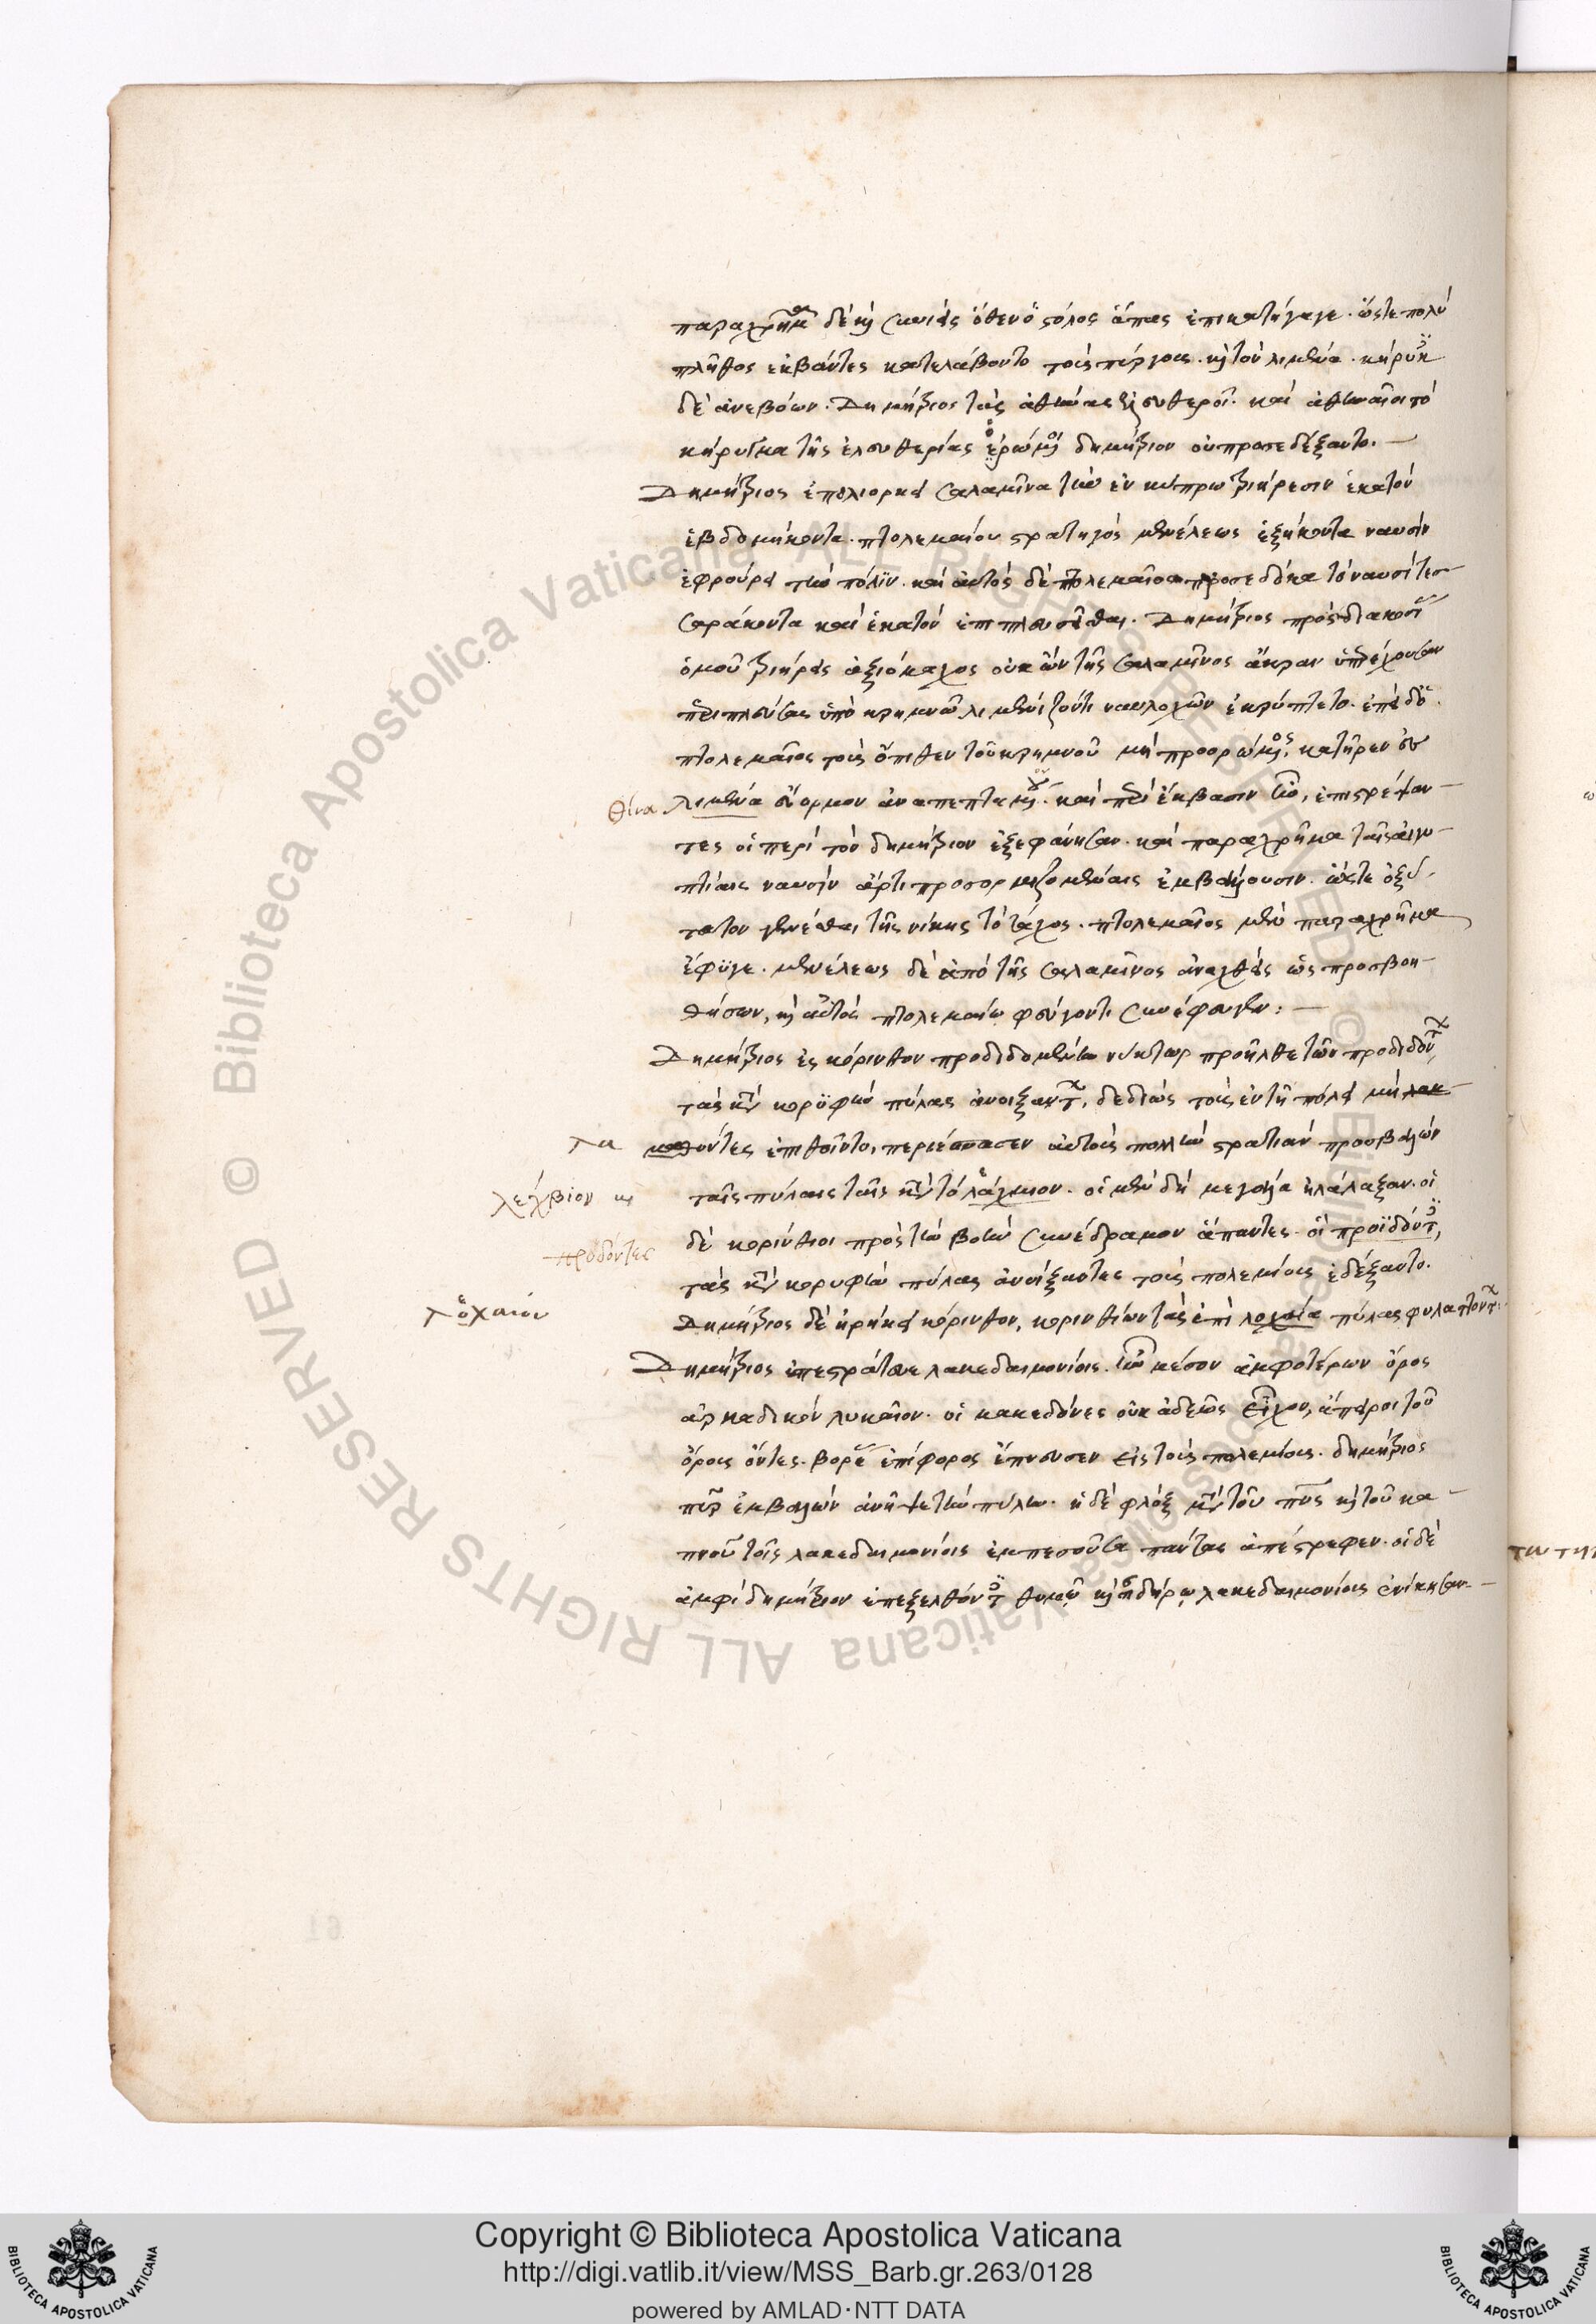 παραχρῆμα δὲ καὶ συνεὶς ὅθεν ὁ στόλος ἅπας ἐπικατήγαγε. ὥστε πολὺ
πλῆθος ἐκβάντες κατελάβοντο τοὺς πύργους. καὶ τὸν λιμένα. κήρυκες
δὲ ἀνεβόων. Δημήτριος τὰς ἀθήνας ἐλευθεροῖ. καὶ ἀθηναῖοι τὸ
κήρυγμα τῆς ἐλευθερίας δημήτριον οὐ προσεδέξαντο. —
Δημήτριος ἐπολιόρκει σαλαμῖνα τὴν ἐν κύπρω τριήρεσιν ἑκατὸν
ἑβδομήκοντα. πτολεμαίου στρατηγὸς μενέλεως ἑξήκοντα ναυσὶν
ἐφρούρει τὴν πόλιν. καὶ αὐτὸς δὲ πτολεμαῖος προσεδόκα τὸ ναυσὶ τεσ
σαράκοντα καὶ ἑκατὸν ἐπιπλευσεῖσθαι. Δημήτριος πρὸς διακοσί
ὁμοῦ τριήρεις ἀξιόμαχος οὐκ ὢν τῆς σαλαμῖνος ἄκραν ὑπερέχουσαν
περιπλεύσας ὑπὸ κρημνῶ λιμενίζοντι ναυλοχῶν ἐκρύπτετο. ἐπεὶ δὲ
πτολεμαῖος τοὺς ὄπισθεν τοῦ κρημνοῦ μὴ προορώμενος, κατῆρεν ἐς
θίνα λιμένα εὔορμον ἀναπεπταμένον. καὶ περὶ ἔκβασιν ἦν, ἐπιστρέψαν —
τες οἱ περὶ τὸν δημήτριον ἐξεφάνησαν. καὶ παραχρῆμα ταῖς αἰγυ —
πτίαις ναυσὶν ἄρτι προσορμιζομέναις ἐμβάλλουσιν. ὥστε ὀξύ
τατον γενέσθαι τῆς νίκης τὸ τάχος. πτολεμαῖος μὲν παραχρῆμα
ἔφυγε. μενέλεως δὲ ἀπὸ τῆς σαλαμῖνος ἀναχθεὶς ὡς προσβοη —
θήσων, καὶ αὐτὸς πτολεμαίω φεύγοντι συνέφευγεν: —
Δημήτριος ἐς κόρινθον προδιδομένην νύκτωρ προῆλθε τῶν προδιδόντων
τὰς κατὰ κορυφὴν πύλας ἀνοιξάντων, δεδιὼς τοὺς ἐν τῆ πόλει μὴ λακ
τα μαθόντες ἐπιθοῖντο, περιέσπασεν αὐτοὺς πολλὴν στρατιὰν προσβαλὼν
λεχβίον ταῖς πύλαις ταῖς κατὰ τὸ λάχμιον. οἱ μὲν δὴ μεγάλα ἠλάλαξαν. οἱ
προδόντες δὲ κορίνθιοι πρὸς τὴν βοὴν συνέδραμον ἅπαντες. οἱ προϊδόντες,
τὰς κατὰ κορυφὴν πύλας ἀνοίξαντες τοὺς πολεμίους ἐδέξαντο.
Δημήτριος δὲ ἡρήκει κόρινθον, κορινθίων τὰς ἐπὶ λοχαία πύλας φυλαττόντων.
Δημήτριος ἐπεστράτευε λακεδαιμονίοις. ἦν μέσον ἀμφοτέρων ὄρος
ἀρκαδικὸν λυκαῖον. οἱ μακεδόνες οὐκ ἀδεῶς εἶχον, ἄπειροι τοῦ
ὄρους ὄντες. βορέας ἐπίφορος ἔπνευσεν εἰς τοὺς πολεμίους. δημήτριος
πῦρ ἐμβαλὼν ἀνῆψε τὴν ὕλην. ἡ δὲ φλὸξ μετὰ τοῦ πυρὸς καὶ τοῦ κα —
πνοῦ τοῖς λακεδαιμονίοις ἐμπεσοῦσα πάντας ἀπέστρεφεν. οἱ δὲ
ἀμφὶ δημήτριον ἐπεξελθόντες λακεδαιμονίους ἐνίκησαν —
Copyright © Biblioteca Apostolica Vaticana
http://digi.vatlib.it/view/MSS_Barb.gr.263/0128
powered by AMLAD·NTT DATA